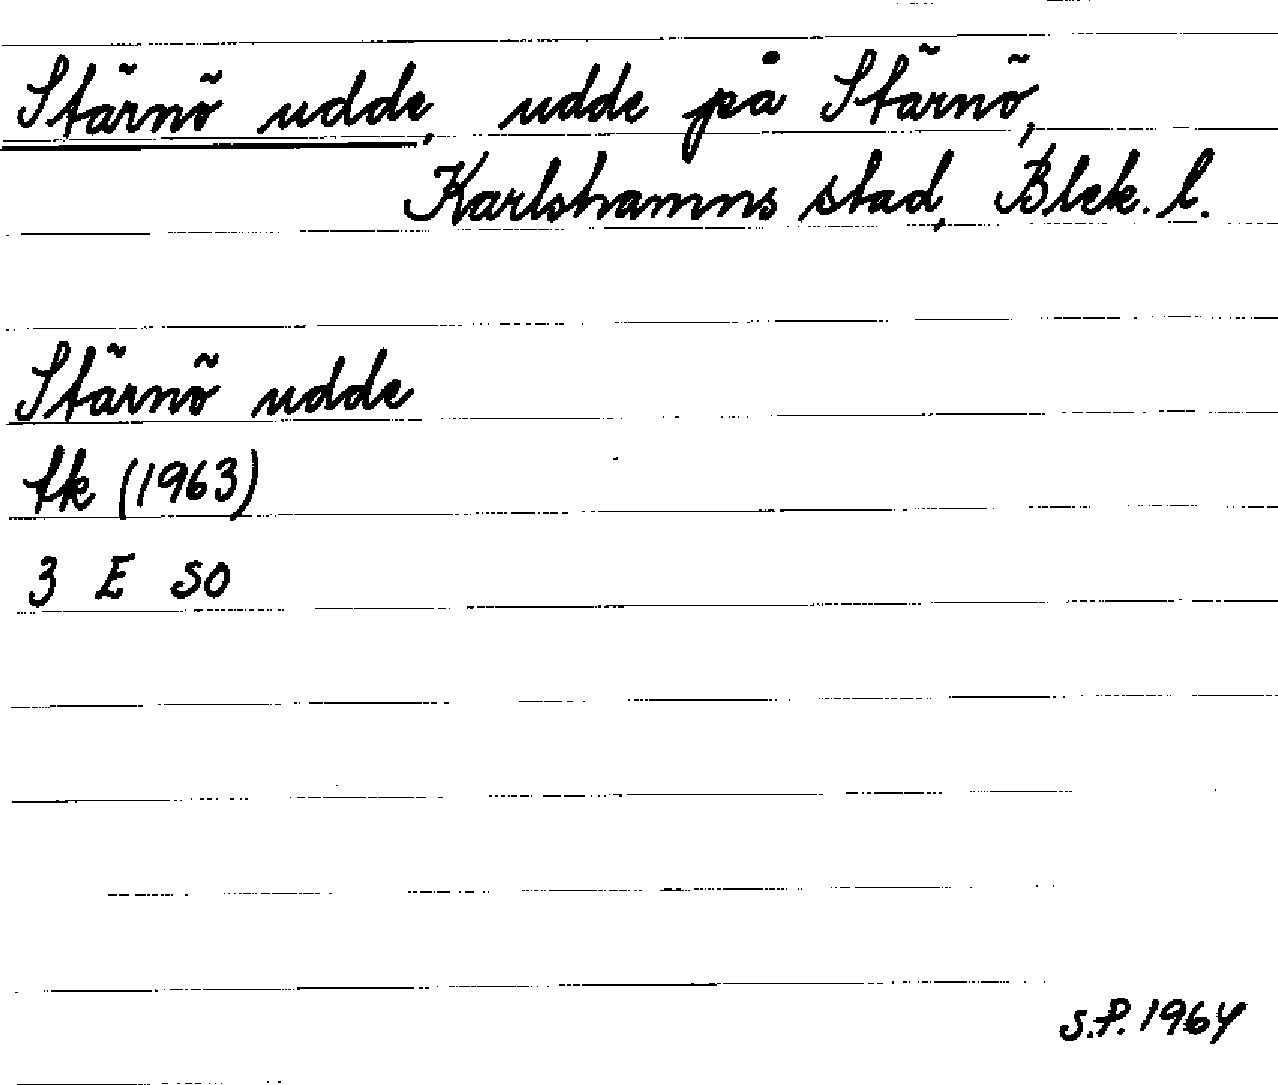 Stärnö udde, udde på Stärnö,
Karlshamns stad, Blek. l.
Stärnö udde
tk (1963)
3 E SO
S.P. 1964